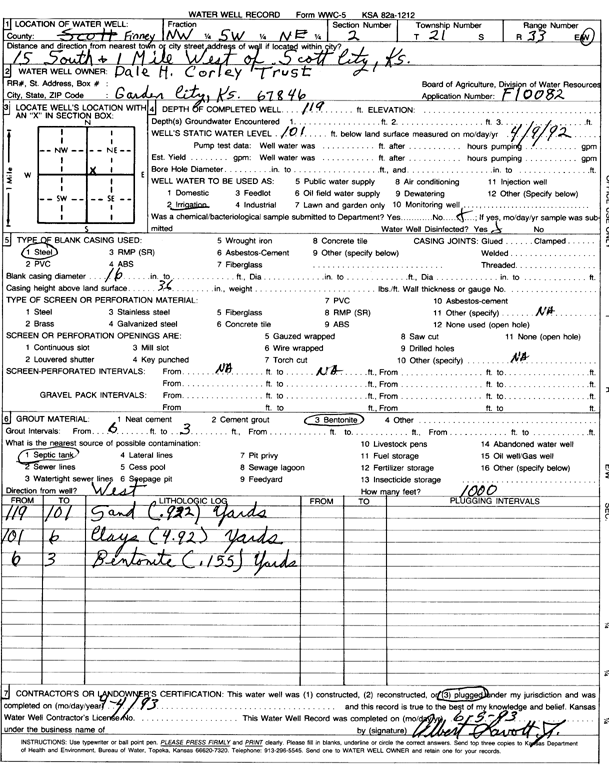 WATER WELL RECORD Form WWC-5 KSA 82a-1212
1 LOCATION OF WATER WELL: Fraction Section Number Township Number Range Number
County: Scott Finney NW ¼ SW ¼ NE ¼ 2 T 21 S R 33 E/W
Distance and direction from nearest town or city street address of well if located within city?
15 South + 1 Mile West of Scott City, Ks.
2 WATER WELL OWNER: Dale H. Corley Trust
RR#, St. Address, Box # : Board of Agriculture, Division of Water Resources
City, State, ZIP Code : Garden City, Ks. 67846 Application Number: F10082
3 LOCATE WELL'S LOCATION WITH AN "X" IN SECTION BOX:
N
NW NE
W X E
SW SE
S
1 Mile
4 DEPTH OF COMPLETED WELL 119 ft. ELEVATION:
Depth(s) Groundwater Encountered 1. ft. 2. ft. 3. ft.
WELL'S STATIC WATER LEVEL 101 ft. below land surface measured on mo/day/yr 4/9/92
Pump test data: Well water was ft. after hours pumping gpm
Est. Yield gpm: Well water was ft. after hours pumping gpm
Bore Hole Diameter in. to ft., and in. to ft.
WELL WATER TO BE USED AS: 5 Public water supply 8 Air conditioning 11 Injection well
1 Domestic 3 Feedlot 6 Oil field water supply 9 Dewatering 12 Other (Specify below)
2 Irrigation 4 Industrial 7 Lawn and garden only 10 Monitoring well
Was a chemical/bacteriological sample submitted to Department? Yes No X; If yes, mo/day/yr sample was submitted Water Well Disinfected? Yes X No
5 TYPE OF BLANK CASING USED: 5 Wrought iron 8 Concrete tile CASING JOINTS: Glued Clamped
1 Steel 3 RMP (SR) 6 Asbestos-Cement 9 Other (specify below) Welded
2 PVC 4 ABS 7 Fiberglass Threaded
Blank casing diameter 16 in. to ft., Dia in. to ft., Dia in. to ft.
Casing height above land surface 36 in., weight lbs./ft. Wall thickness or gauge No.
TYPE OF SCREEN OR PERFORATION MATERIAL: 7 PVC 10 Asbestos-cement
1 Steel 3 Stainless steel 5 Fiberglass 8 RMP (SR) 11 Other (specify) NA
2 Brass 4 Galvanized steel 6 Concrete tile 9 ABS 12 None used (open hole)
SCREEN OR PERFORATION OPENINGS ARE: 5 Gauzed wrapped 8 Saw cut 11 None (open hole)
1 Continuous slot 3 Mill slot 6 Wire wrapped 9 Drilled holes
2 Louvered shutter 4 Key punched 7 Torch cut 10 Other (specify) NA
SCREEN-PERFORATED INTERVALS: From NA ft. to NA ft., From ft. to ft.
From ft. to ft., From ft. to ft.
GRAVEL PACK INTERVALS: From ft. to ft., From ft. to ft.
From ft. to ft., From ft. to ft.
6 GROUT MATERIAL: 1 Neat cement 2 Cement grout 3 Bentonite 4 Other
Grout Intervals: From 6 ft. to 3 ft., From ft. to ft., From ft. to ft.
What is the nearest source of possible contamination: 10 Livestock pens 14 Abandoned water well
1 Septic tank 4 Lateral lines 7 Pit privy 11 Fuel storage 15 Oil well/Gas well
2 Sewer lines 5 Cess pool 8 Sewage lagoon 12 Fertilizer storage 16 Other (specify below)
3 Watertight sewer lines 6 Seepage pit 9 Feedyard 13 Insecticide storage
Direction from well? West How many feet? 1000
FROM TO LITHOLOGIC LOG FROM TO PLUGGING INTERVALS
119 101 Sand (.922) Yards
101 6 Clays (4.92) Yards
6 3 Bentonite (.155) Yards
7 CONTRACTOR'S OR LANDOWNER'S CERTIFICATION: This water well was (1) constructed, (2) reconstructed, or (3) plugged under my jurisdiction and was
completed on (mo/day/year) 4-4/93 and this record is true to the best of my knowledge and belief. Kansas
Water Well Contractor's License No. This Water Well Record was completed on (mo/day/yr) 6/5-93
under the business name of by (signature)
INSTRUCTIONS: Use typewriter or ball point pen. PLEASE PRESS FIRMLY and PRINT clearly. Please fill in blanks, underline or circle the correct answers. Send top three copies to Kansas Department
of Health and Environment, Bureau of Water, Topeka, Kansas 66620-7320. Telephone: 913-296-5545. Send one to WATER WELL OWNER and retain one for your records.